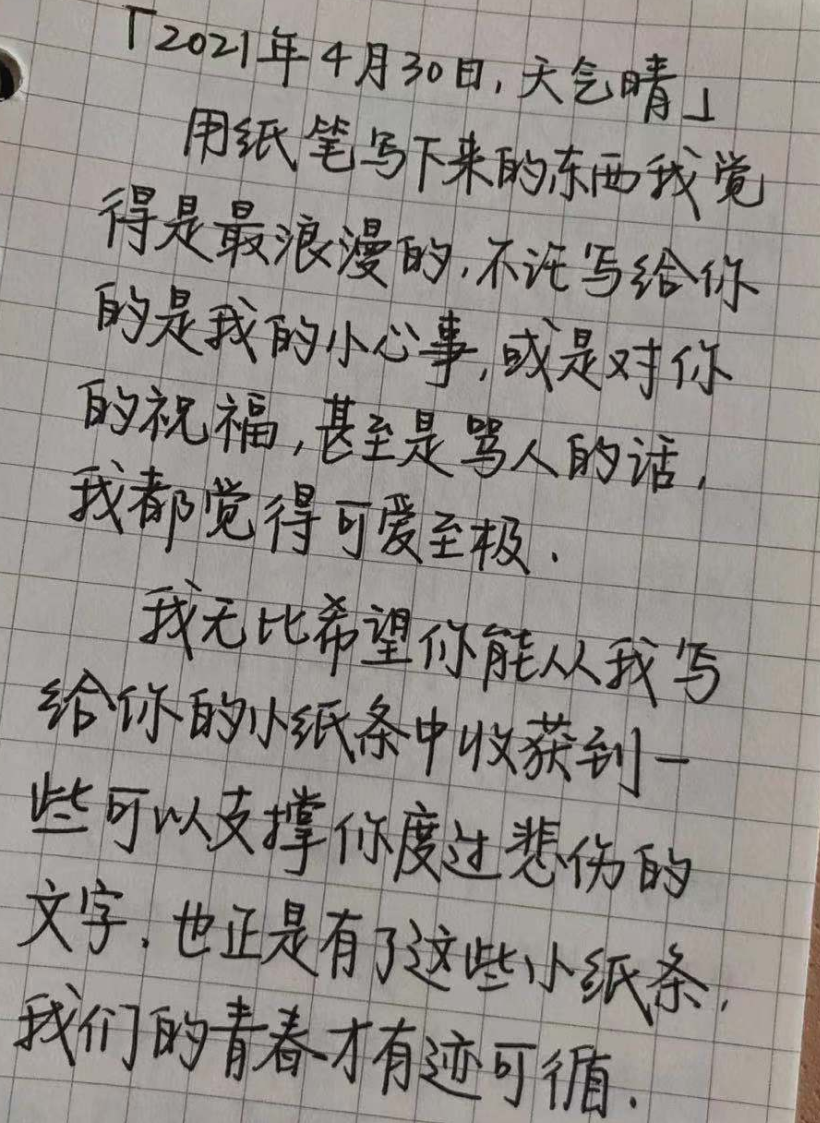 「2021年4月30日,天气晴」
用纸笔写下来的东西我觉
得是最浪漫的,不论写给你
的是我的小心事,或是对你
的祝福,甚至是骂人的话,
我都觉得可爱至极.
我无比希望你能从我写
给你的小纸条中收获到一
些可以支撑你度过悲伤的
文字.也正是有了这些小纸条,
我们的青春才有迹可循.